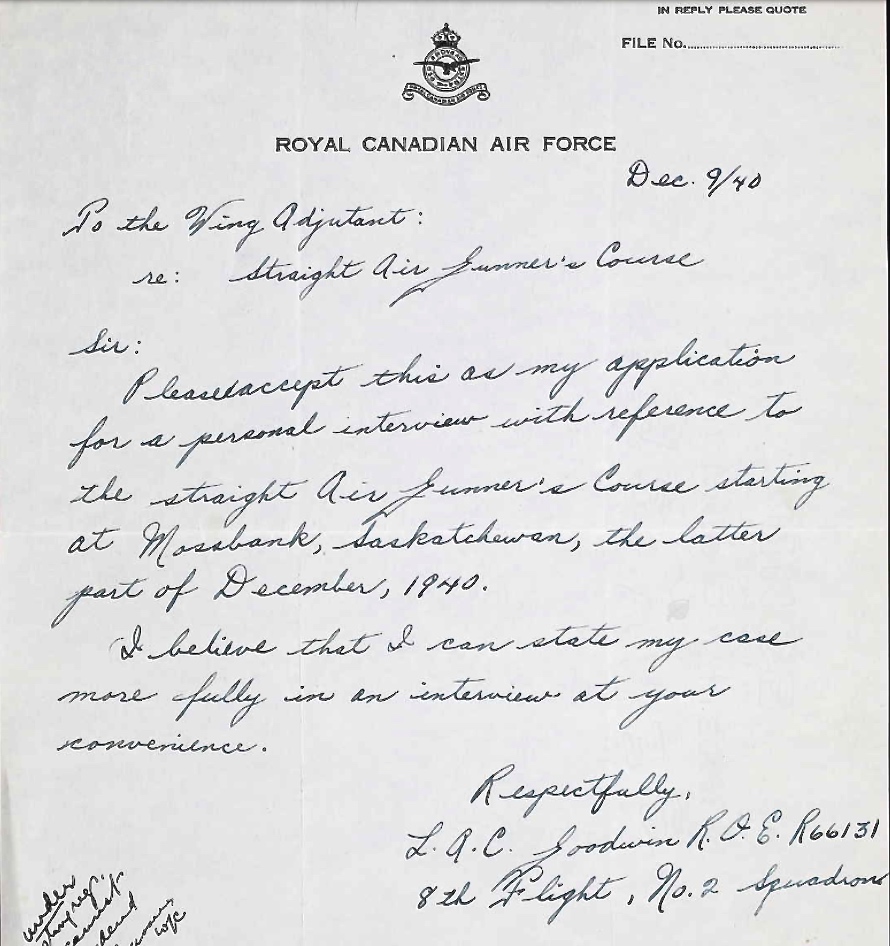 IN REPLY PLEASE QUOTE
FILE No.
ROYAL CANADIAN AIR FORCE
ROYAL CANADIAN AIR FORCE
Dec. 9/40
To the Wing Adjutant:
re: Straight Air Gunner's Course
Sir:
Please accept this as my application
for a personal interview with reference to
the straight Air Gunner's Course starting
at Mossbank, Saskatchewan, the latter
part of December, 1940.
I believe that I can state my case
more fully in an interview at your
convenience.
Respectfully,
L.A.C. Goodwin R.O.E. R66131
8th Flight, No. 2 Squadron
under
cannot
W/C